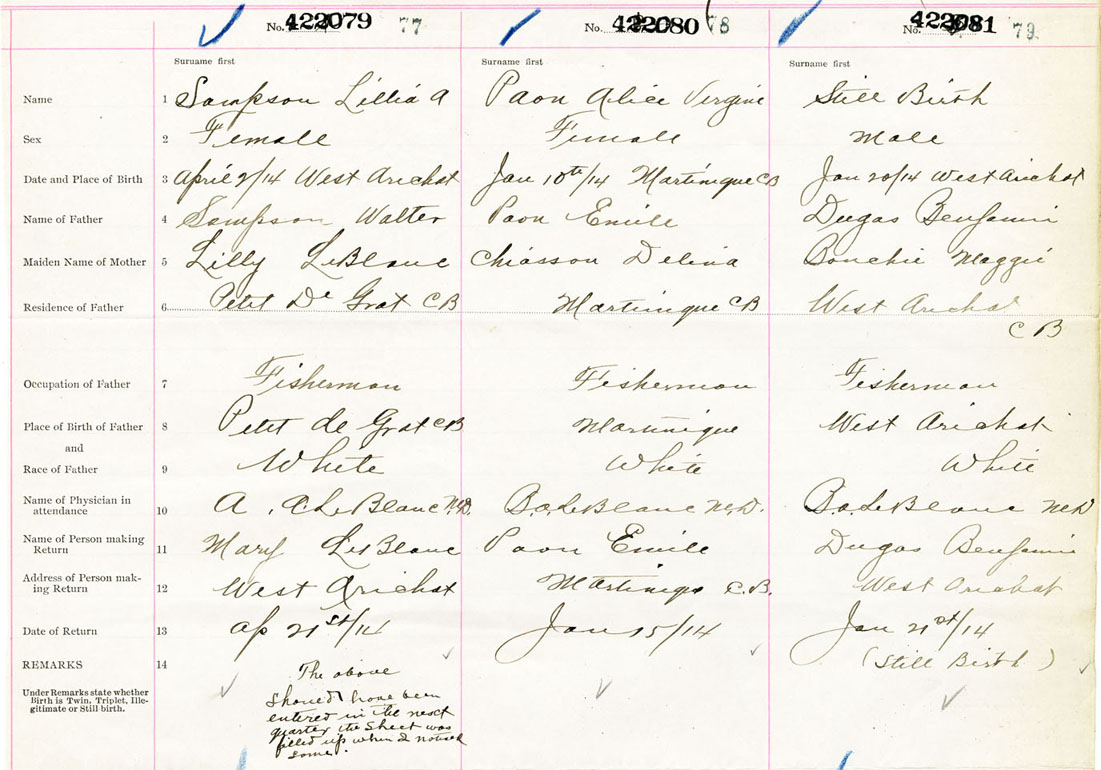 No. 422079 77 No. 422080 78 No. 422081 79
Surname first Surname first Surname first
Name 1 Sampson Lillia A Paon Alice Virgine Still Birth
Sex 2 Female Female Male
Date and Place of Birth 3 April 2/14 West Arichat Jan 10th/14 Martinique CB Jan 20/14 West Arichat
Name of Father 4 Sampson Walter Paon Emile Dugas Benjamin
Maiden Name of Mother 5 Lilly LeBlanc Chiasson Delina Bouchie Maggie
Residence of Father 6 Petit De Grat CB Martinique CB West Arichat
C B
Occupation of Father 7 Fisherman Fisherman Fisherman
Place of Birth of Father 8 Petit de Grat CB Martinique West Arichat
and
Race of Father 9 White White White
Name of Physician in
attendance 10 A. LeBlanc M.D. B.a. LeBlanc M.D. B.a. LeBlanc M.D
Name of Person making
Return 11 Mary LeBlanc Paon Emile Dugas Benjamin
Address of Person mak-
ing Return 12 West Arichat C.B. West Arichat
Date of Return 13 Ap 21st/14 Jan 15/14 Jan 21st/14
REMARKS 14 The above (Still Birth)
Under Remarks state whether
Birth is Twin, Triplet, Ille-
gitimate or Still-birth.
should have been
entered in the next
quarter the sheet was
filled up when I noticed
same.